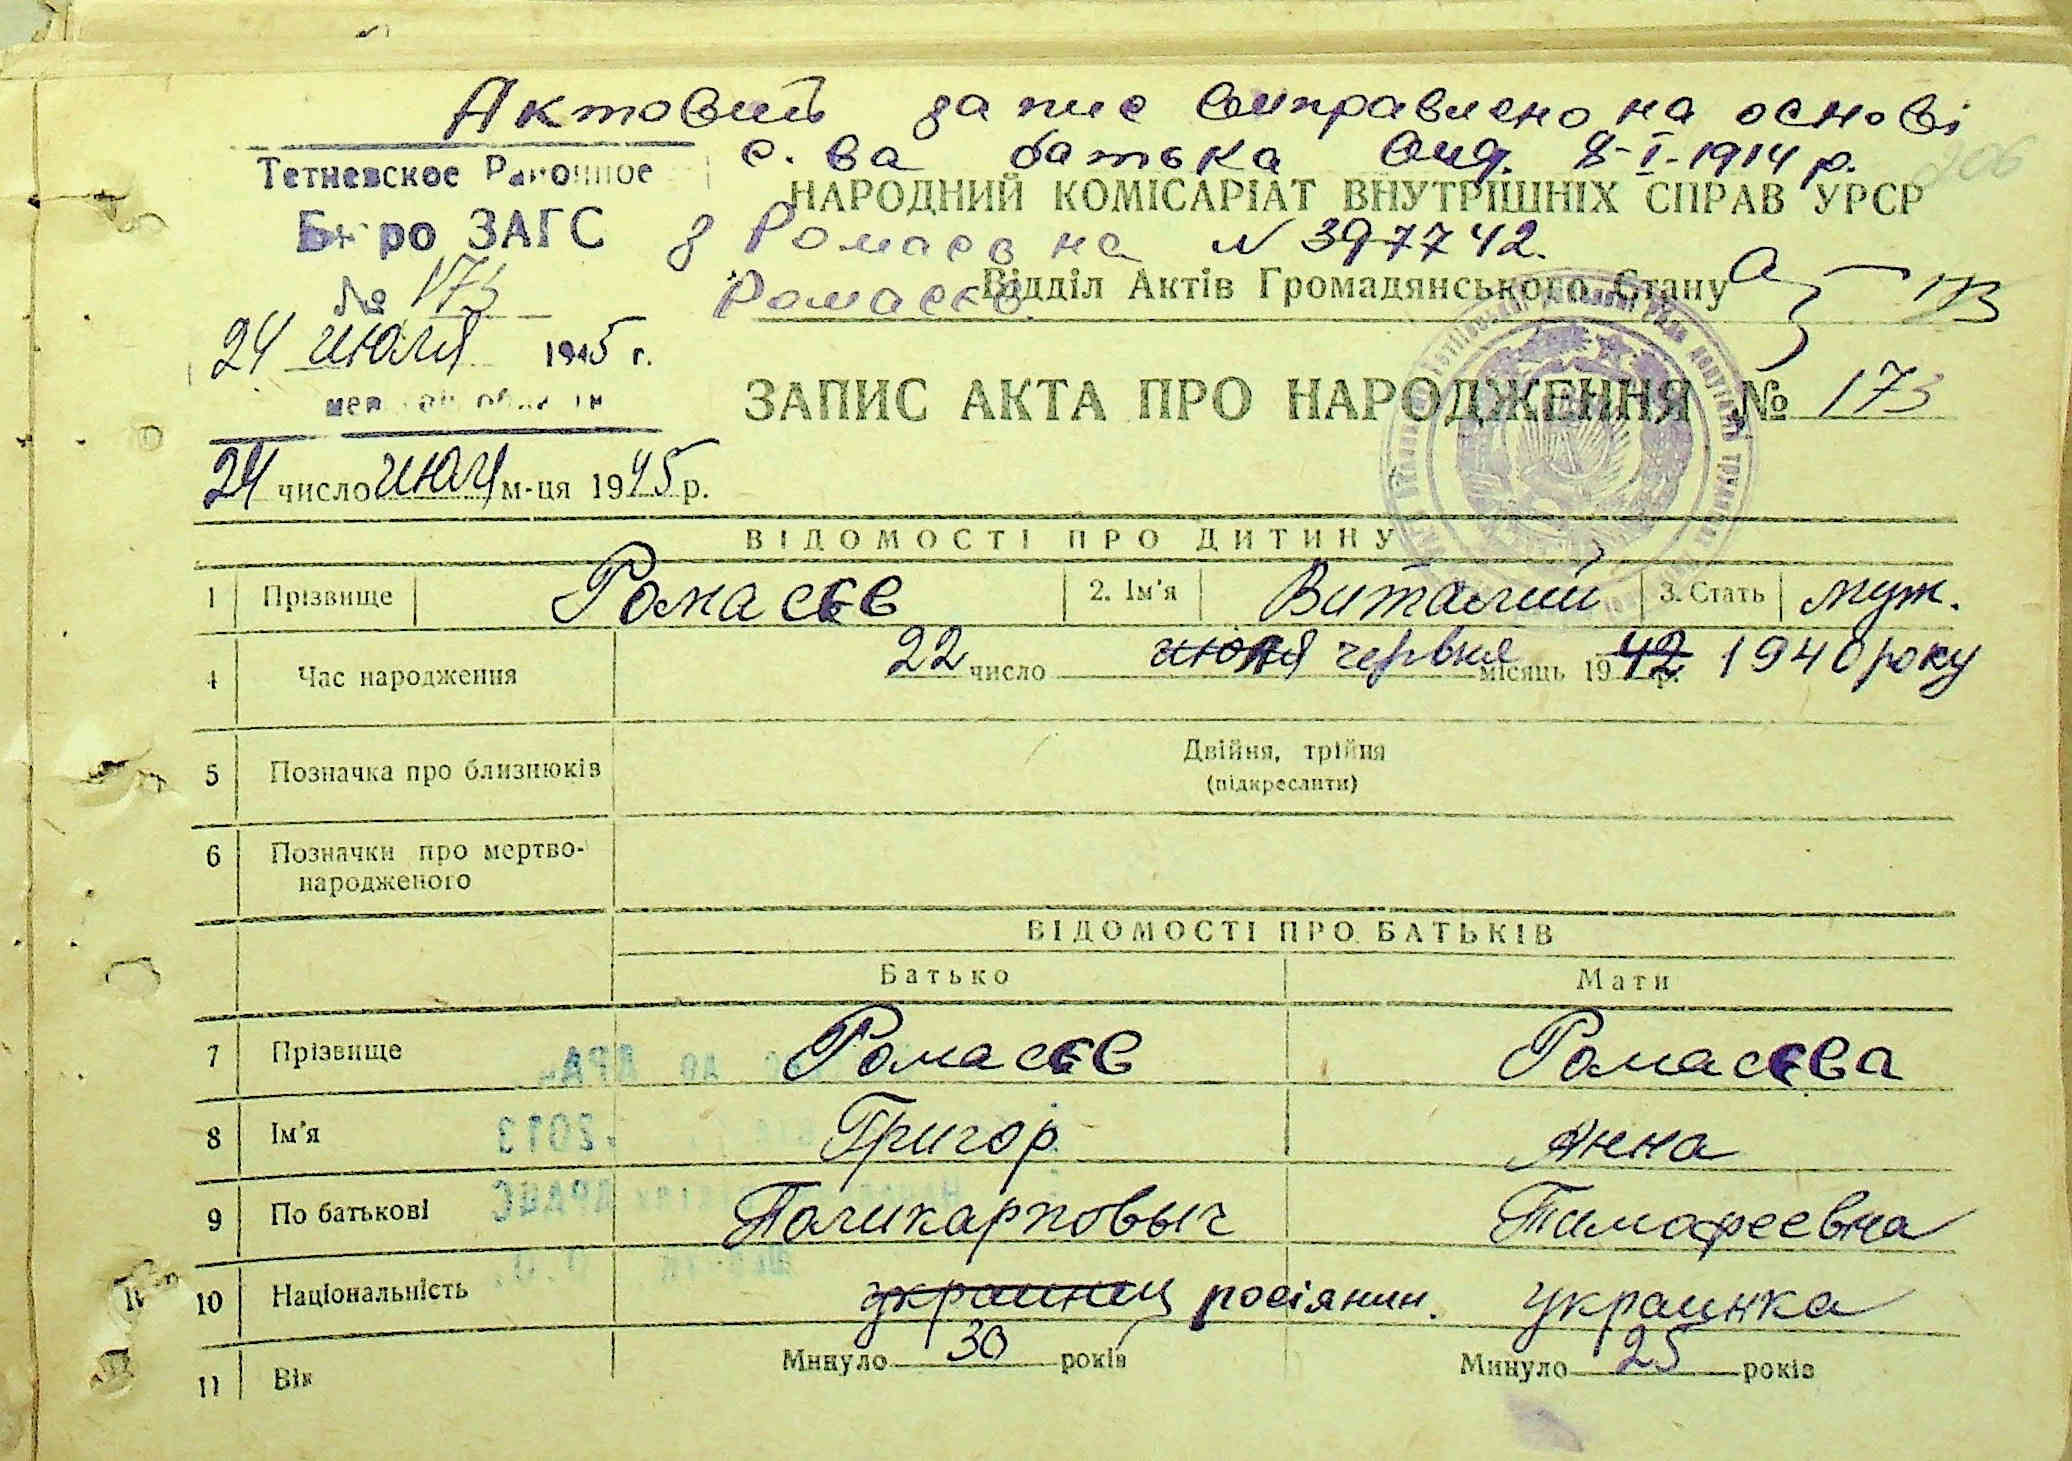 Актовий запис виправлено на основі
с.ва батька вид. 8-I-1914 р.
206
Тетиевское Районное
НАРОДНИЙ КОМІСАРІАТ ВНУТРІШНІХ СПРАВ УРСР
Бюро ЗАГС
з Ромаєв на № 397742.
№ 173
Ромасєв.
Відділ Актів Громадянського Стану
173
24 июля 1945 г.
ЗАПИС АКТА ПРО НАРОДЖЕННЯ № 173
24 число июля м-ця 1945 р.
ВІДОМОСТІ ПРО ДИТИНУ
1 Прізвище Ромасєв 2. Ім'я Виталий 3. Стать муж.
4 Час народження 22 число июня червня місяць 1942 р. 1940 року
5 Позначка про близнюків Двійня, трійня
(підкреслити)
6 Позначки про мертво-
народженого
ВІДОМОСТІ ПРО БАТЬКІВ
Батько Мати
7 Прізвище Ромасєв Ромасєва
8 Ім'я Григор. Анна
9 По батькові Поликарповыч Тимофеевна
10 Національність украинец росіянин. украинка
11 Вік Минуло 30 років Минуло 25 років